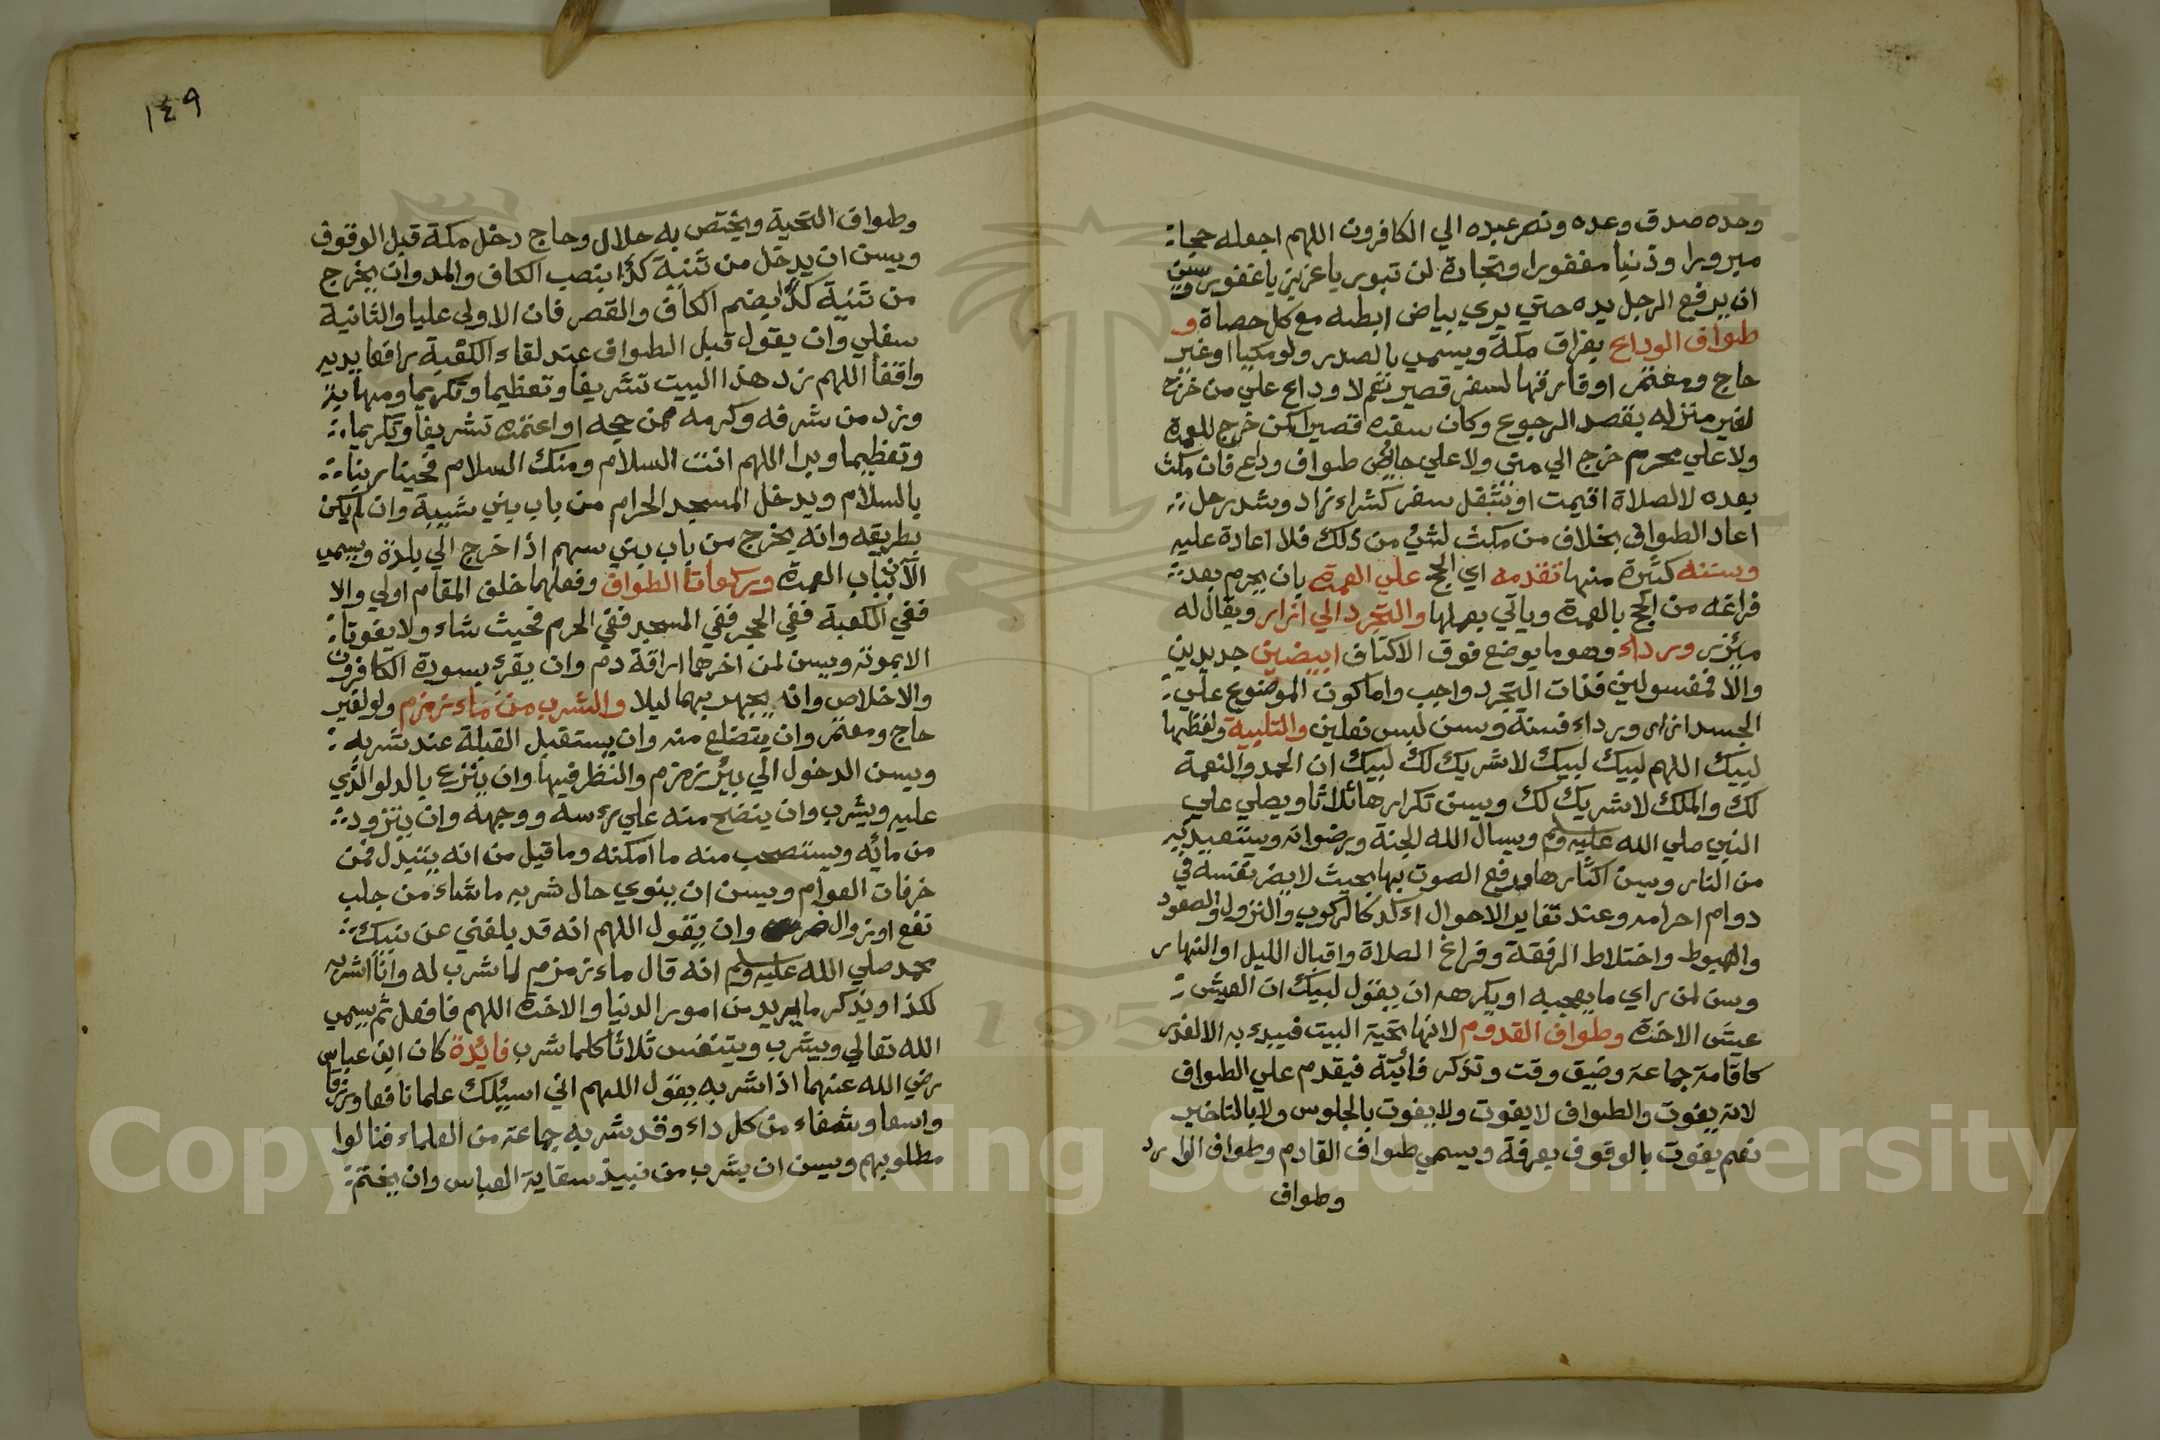 وحده صدق وعده ونصر عبده الي الكافرون اللهم اجعله حجا
مبرورا وذنبا مغفورا وتجارة لن تبور يا عزيز يا غفور وسن
ان يرفع الرجل يده حتي يري بياض ابطه مع كل حصاة و
طواف الوداع بفراق مكة ويسمي بالصدر ولو مكيا او غير
حاج ومعتمر او فارقها لسفر قصير نعم لا وداع علي من خرج
لغير منزله بقصد الرجوع وكان سفره قصيرا كمن خرج للعمرة
ولا علي محرم خرج الي مني ولا علي حائض طواف وداع فان مكث
بعده لا لصلاة اقيمت او بشغل سفر كشراء زاد وشد رحل
اعاد الطواف بخلاف من مكث لشئ من ذلك فلا اعادة عليه
وسننه كثيرة منها تقدمه اي الحج علي العمرة بان يحرم بعد
فراغه من الحج بالعمرة وياتي بعملها والتجرد الي ازار ويقال له
مئزر ورداء وهو ما يوضع فوق الاكتاف ابيضين جديدين
والا فمغسولين فذات التجرد واجب واما كون الموضوع علي
الجسد ازار ورداء فسنة وسن لبس نعلين والتلبية ولفظها
لبيك اللهم لبيك لبيك لا شريك لك لبيك ان الحمد والنعمة
لك والملك لا شريك لك ويسن تكرارها ثلاثا ويصلي علي
النبي صلي الله عليه وسلم ويسال الله الجنة ورضوانه ويستعيذ به
من النار وسن اكثارها ورفع الصوت بها بحيث لا يضر نفسه في
دوام احرامه وعند تغاير الاحوال اكد كالركوب والنزول والصعود
والهبوط واختلاط الرفقة وفراغ الصلاة واقبال الليل او النهار
وسن لمن راي ما يعجبه او يكرهه ان يقول لبيك ان العيش
عيش الاخرة وطواف القدوم لانها تحية البيت فيبدء به الا لعذر
كاقامة جماعة وضيق وقت وتذكر فائتة فيقدم علي الطواف
لانه يفوت والطواف لا يفوت ولا يفوت بالجلوس ولا بالتاخير
نعم يفوت بالوقوف بعرفة ويسمي طواف القادم وطواف الوارد
وطواف
١٤٩
وطواف التحية ويختص به حلال وحاج دخل مكة قبل الوقوف
ويسن ان يدخل من ثنية كدا بنصب الكاف والمد وان يخرج
من ثنية كدا بضم الكاف والقصر فان الاولي عليا والثانية
سفلي وان يقول قبل الطواف عند لقاء الكعبة رافعا يديه
واقفا اللهم زد هذا البيت تشريفا وتعظيما وتكريما ومهابة
وزد من شرفه وكرمه ممن حجه او اعتمره تشريفا وتكريما
وتعظيما وبرا اللهم انت السلام ومنك السلام فحينا ربنا
بالسلام ويدخل المسجد الحرام من باب بني شيبة وان لم يكن
بطريقه وانه يخرج من باب بني سهم اذا خرج الي بلدة ويسمي
الآن بباب العمرة وركعات الطواف وفعلهما خلف المقام اولي والا
ففي الكعبة ففي الحجر ففي المسجد ففي الحرم فحيث شاء ولا يفوتا
الا بموته ويسن لمن اخرهما اراقة دم وان يقرء بسورة الكافرون
والاخلاص وانه يجهر بهما ليلا والشرب من ماء زمزم ولو لغير
حاج ومعتمر وان يتضلع منه وان يستقبل القبلة عند شربه
ويسن الدخول الي بير زمزم والنظر فيها وان ينزع بالدلو الذي
عليه ويشرب وان ينضح منه علي رءسه ووجهه وان يتزود
من مائه ويستصحب منه ما امكنه وما قيل من انه يتبدل فمن
خرفات العوام ويسن ان ينوي حال شربه ما شاء من جلب
نفع او زوال ضر وان يقول اللهم انه قد بلغني عن نبيك
محمد صلي الله عليه وسلم انه قال ماء زمزم لما شرب له وانا اشربه
لكذا ويذكر ما يريد من امور الدنيا والاخرة اللهم فافعل ثم يسمي
الله تعالي ويشرب ويتنفس ثلاثا كلما شرب فائدة كان ابن عباس
رضي الله عنهما اذا شربه يقول اللهم اني اسئلك علما نافعا ورزقا
واسعا وشفاء من كل داء وقد شربه جماعة من العلماء فنالوا
مطلوبهم ويسن ان يشرب من نبيذ سقاية العباس وان يختم
Copyright © King Saud University
1957